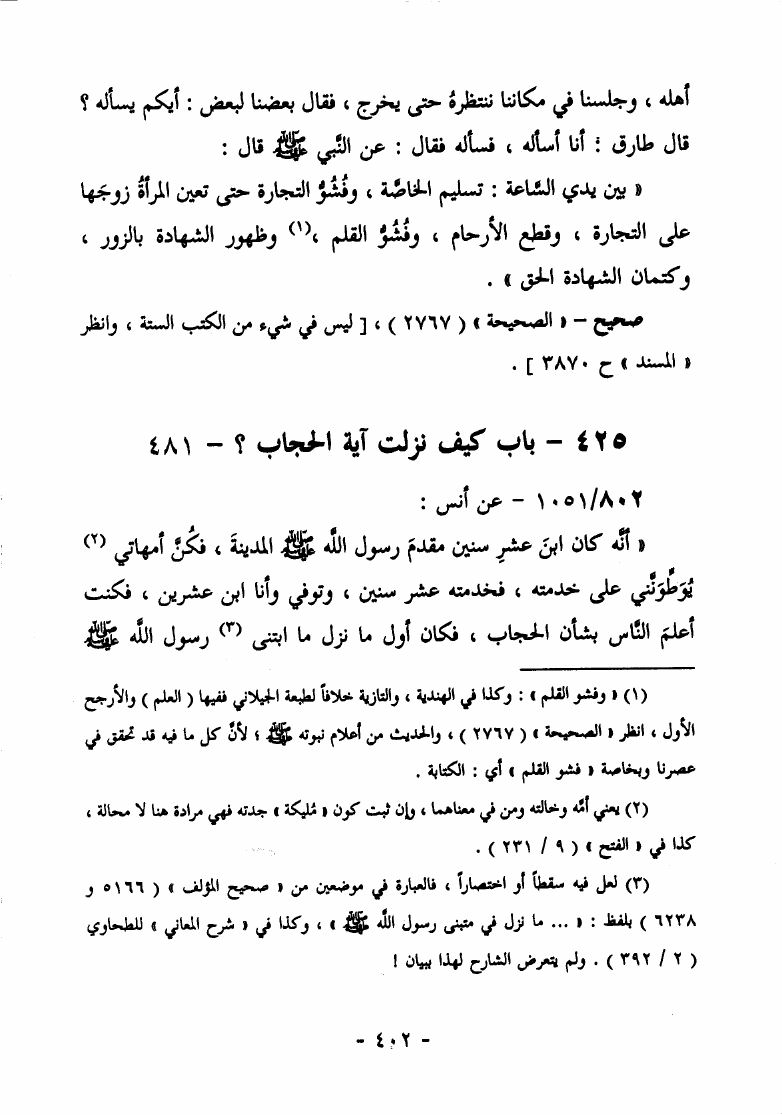 أهله ، وجلسنا في مكاننا ننتظرهُ حتى يخرج ، فقال بعضنا لبعض : أيكم يسأله ؟
قال طارق : أنا أسأله ، فسأله فقال : عن النَّبي ﷺ قال :
« بين يدي السَّاعة : تسليم الخاصَّة ، وفُشُوُّ التجارة حتى تعين المرأةُ زوجَها
على التجارة ، وقطع الأرحام ، وفُشُوُّ القلم ،(١) وظهور الشهادة بالزور ،
وكتمان الشهادة الحق » .
صحيح – « الصحيحة » ( ٢٧٦٧ ) ، [ ليس في شيء من الكتب الستة ، وانظر
« المسند » ح ٣٨٧٠ ] .
٤٢٥ – باب كيف نزلت آية الحجاب ؟ – ٤٨١
١٠٥١/٨٠٢ – عن أنس :
« أنَّه كان ابنَ عشرِ سنين مقدمَ رسول اللَّه ﷺ المدينةَ ، فكُنَّ أمهاتي (٢)
يُوَطِّونَّني على خدمته ، فخدمته عشر سنين ، وتوفي وأنا ابن عشرين ، فكنت
أعلمَ النَّاس بشأن الحجاب ، فكان أول ما نزل ما ابتنى (٣) رسول اللَّه ﷺ
(١) « وفشو القلم » : وكذا في الهندية ، والتازية خلافاً لطبعة الجيلاني ففيها ( العلم ) والأرجح
الأول ، انظر « الصحيحة » ( ٢٧٦٧ ) ، والحديث من أعلام نبوته ﷺ ؛ لأنَّ كل ما فيه قد تحقق في
عصرنا وبخاصة « فشو القلم » أي : الكتابة .
(٢) يعني أمَّه وخالته ومن في معناهما ، وإن ثبت كون « مُليكة » جدته فهي مرادة هنا لا محالة ،
كذا في « الفتح » ( ٩ / ٢٣١ ) .
(٣) لعل فيه سقطاً أو اختصاراً ، فالعبارة في موضعين من « صحيح المؤلف » ( ٥١٦٦ و
٦٢٣٨ ) بلفظ : « ... ما نزل في متبنى رسول اللَّه ﷺ » ، وكذا في « شرح المعاني » للطحاوي
( ٢ / ٣٩٢ ) . ولم يتعرض الشارح لهذا ببيان !
- ٤٠٢ -